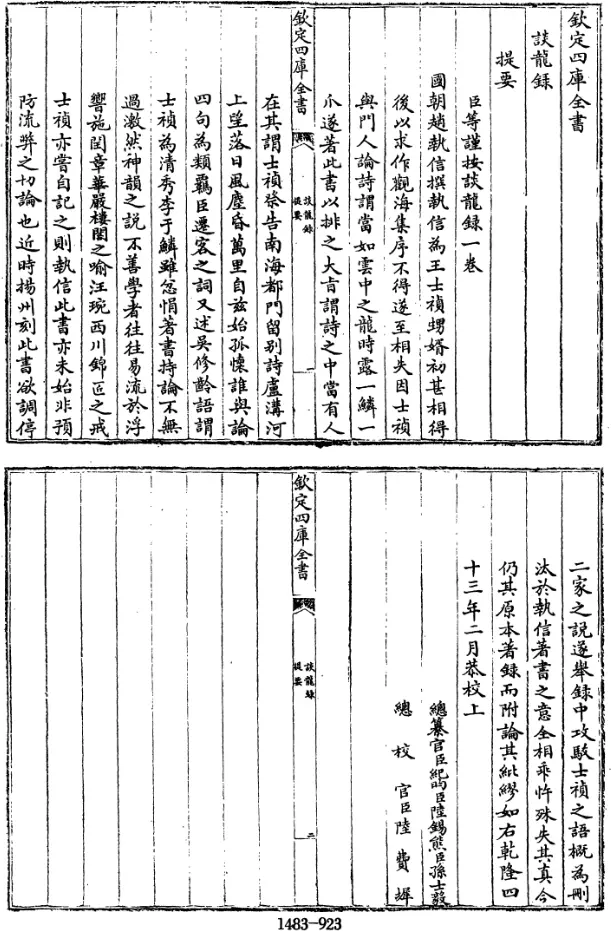 欽定四庫全書
談龍錄
提要
臣等謹按談龍錄一卷
國朝趙執信撰執信為王士禎甥婿初甚相得
後以求作觀海集序不得遂至相失因士禎
與門人論詩謂當如雲中之龍時露一鱗一
爪遂著此書以排之大㫖謂詩之中當有人
欽定四庫全書
談龍錄
提要
一
在其謂士禎祭告南海都門留别詩盧溝河
上望落日風塵昏萬里自兹始孤懷誰與論
四句為類羈臣遷客之詞又述吳修齡語謂
士禎為清秀李于鱗雖忿悁著書持論不無
過激然神韻之説不善學者往往易流於浮
響施閏章華嚴樓閣之喻汪琬西川錦匠之戒
士禎亦嘗自記之則執信此書亦未始非預
防流弊之切論也近時揚州刻此書欲調停
二家之説遂舉錄中攻駁士禎之語概為刪
汰於執信著書之意全相乖忤殊失其真今
仍其原本著錄而附論其紕繆如右乾隆四
十三年二月恭校上
總纂官臣紀昀臣陸錫熊臣孫士毅
總校官臣陸費墀
欽定四庫全書
談龍錄
提要
二
1483-923